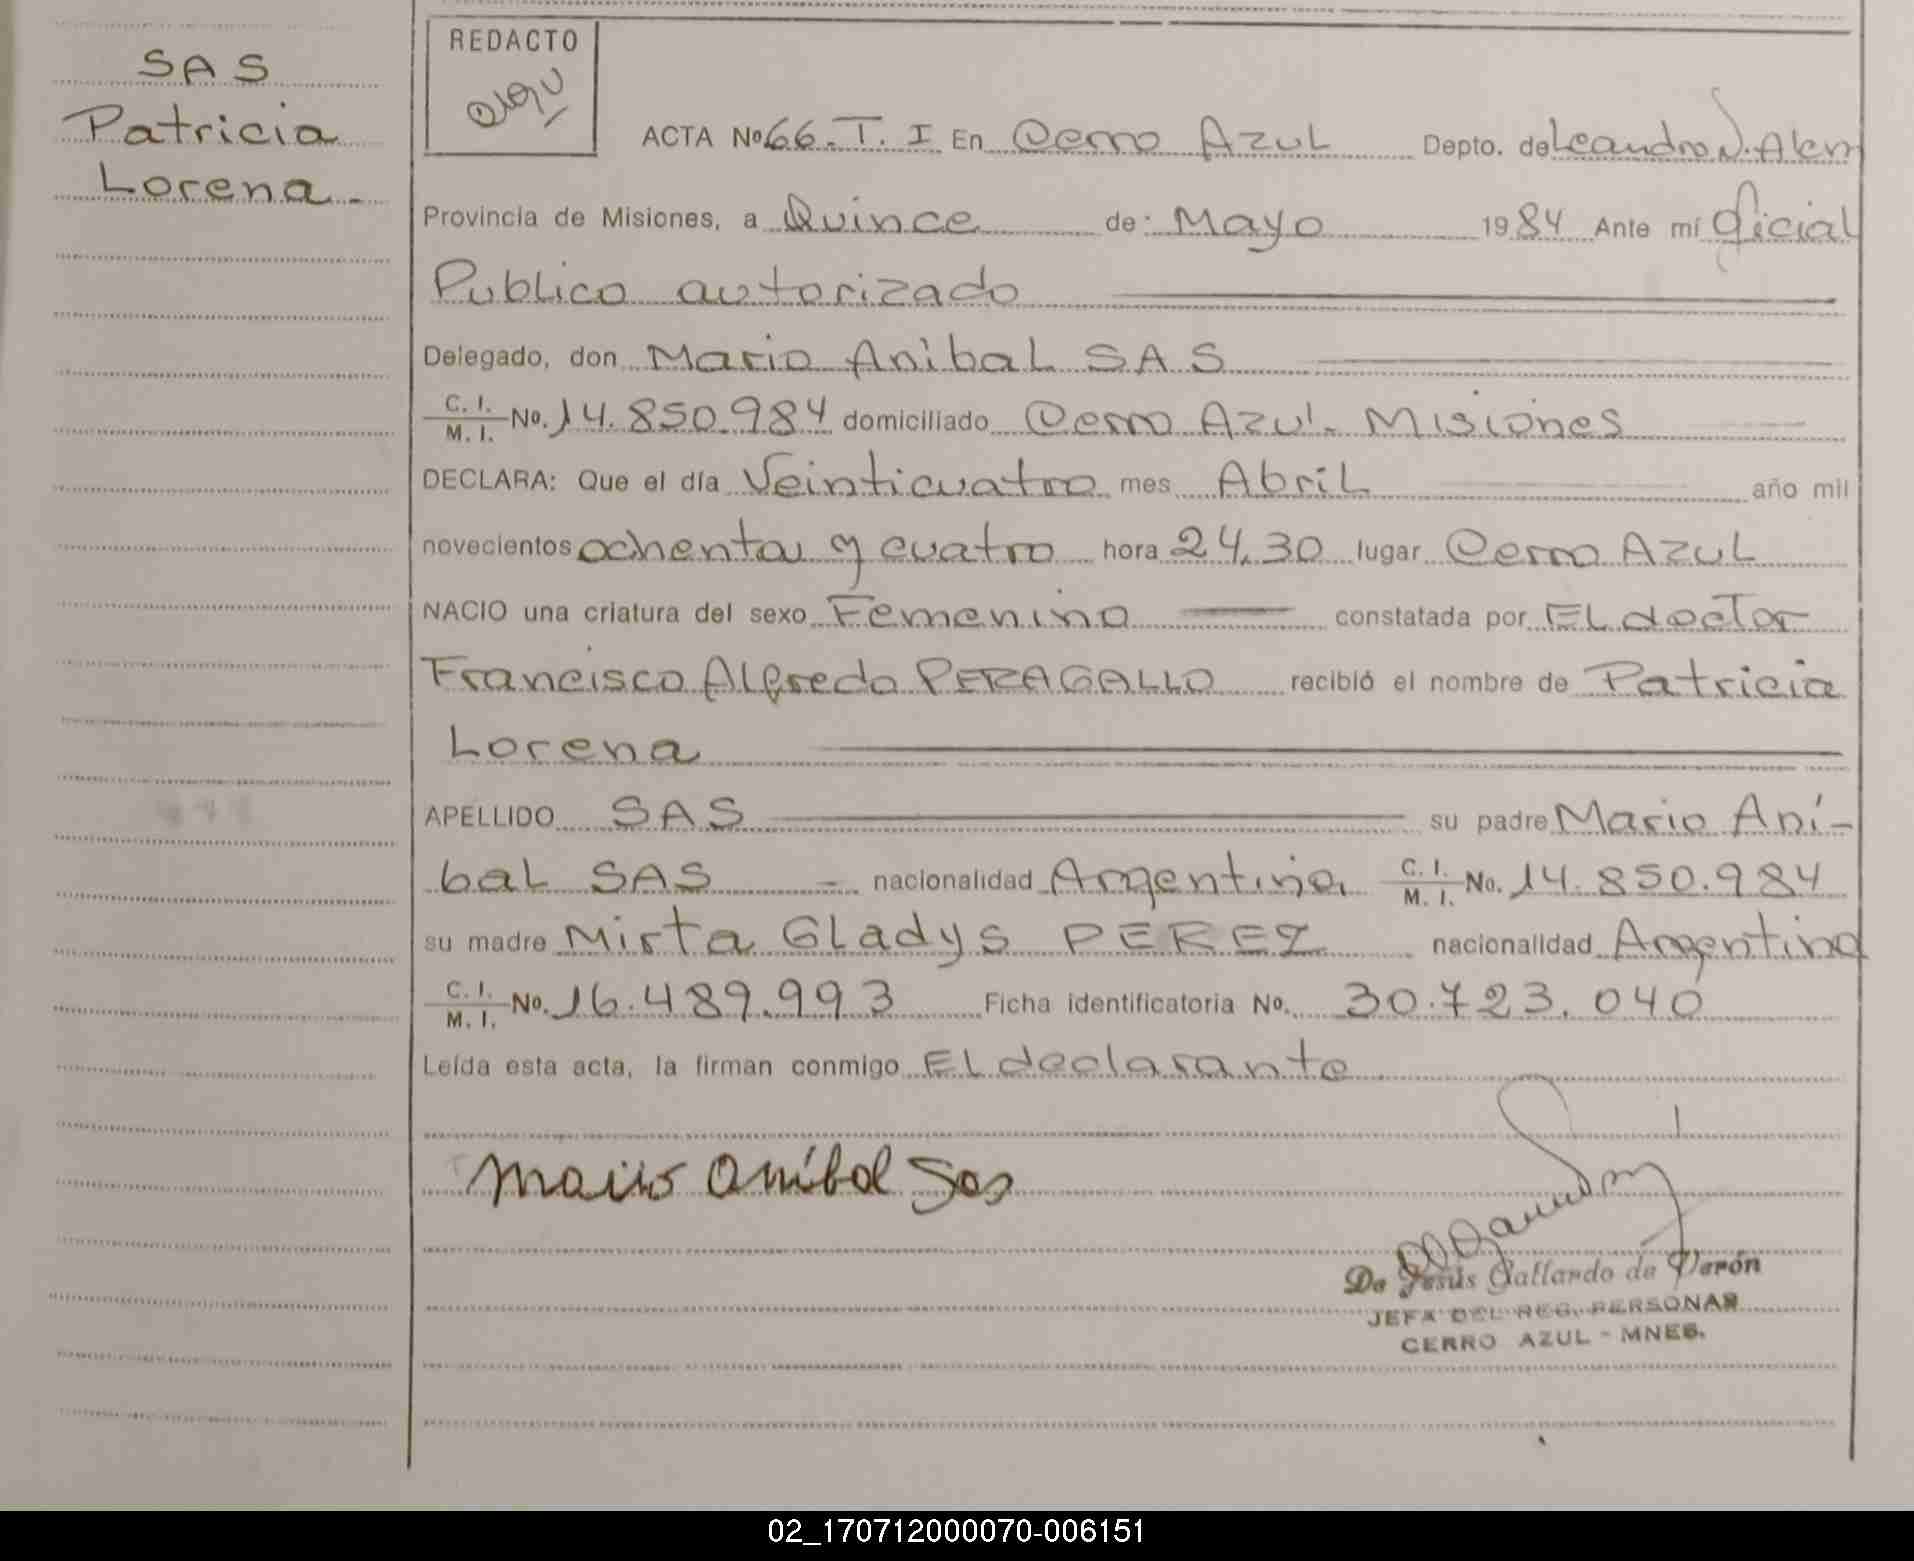 SAS
Patricia
Lorena.-
REDACTO
ACTA Nº 66. T. I En Cerro Azul Depto. de Leandro N. Alem
Provincia de Misiones, a Quince de: Mayo 1984 Ante mí Oficial
Publico autorizado
Delegado, don Mario Anibal SAS
C. I. / M. I. No. 14.850.984 domiciliado Cerro Azul. Misiones
DECLARA: Que el día Veinticuatro mes Abril año mil
novecientos ochenta y cuatro hora 24,30 lugar Cerro Azul
NACIO una criatura del sexo Femenino constatada por El doctor
Francisco Alfredo PERAGALLO recibió el nombre de Patricia
Lorena
APELLIDO SAS su padre Mario Aní-
bal SAS - nacionalidad Argentina C. I. / M. I. No. 14.850.984
su madre Mirta Gladys PEREZ nacionalidad Argentina
C. I. / M. I. No. 16.489.993 Ficha identificatoria No. 30.723.040
Leída esta acta, la firman conmigo El declarante
Mario Anibal Sas
De Jesús Gallardo de Verón
JEFA DEL REG. PERSONAS
CERRO AZUL - MNES.
02_170712000070-006151